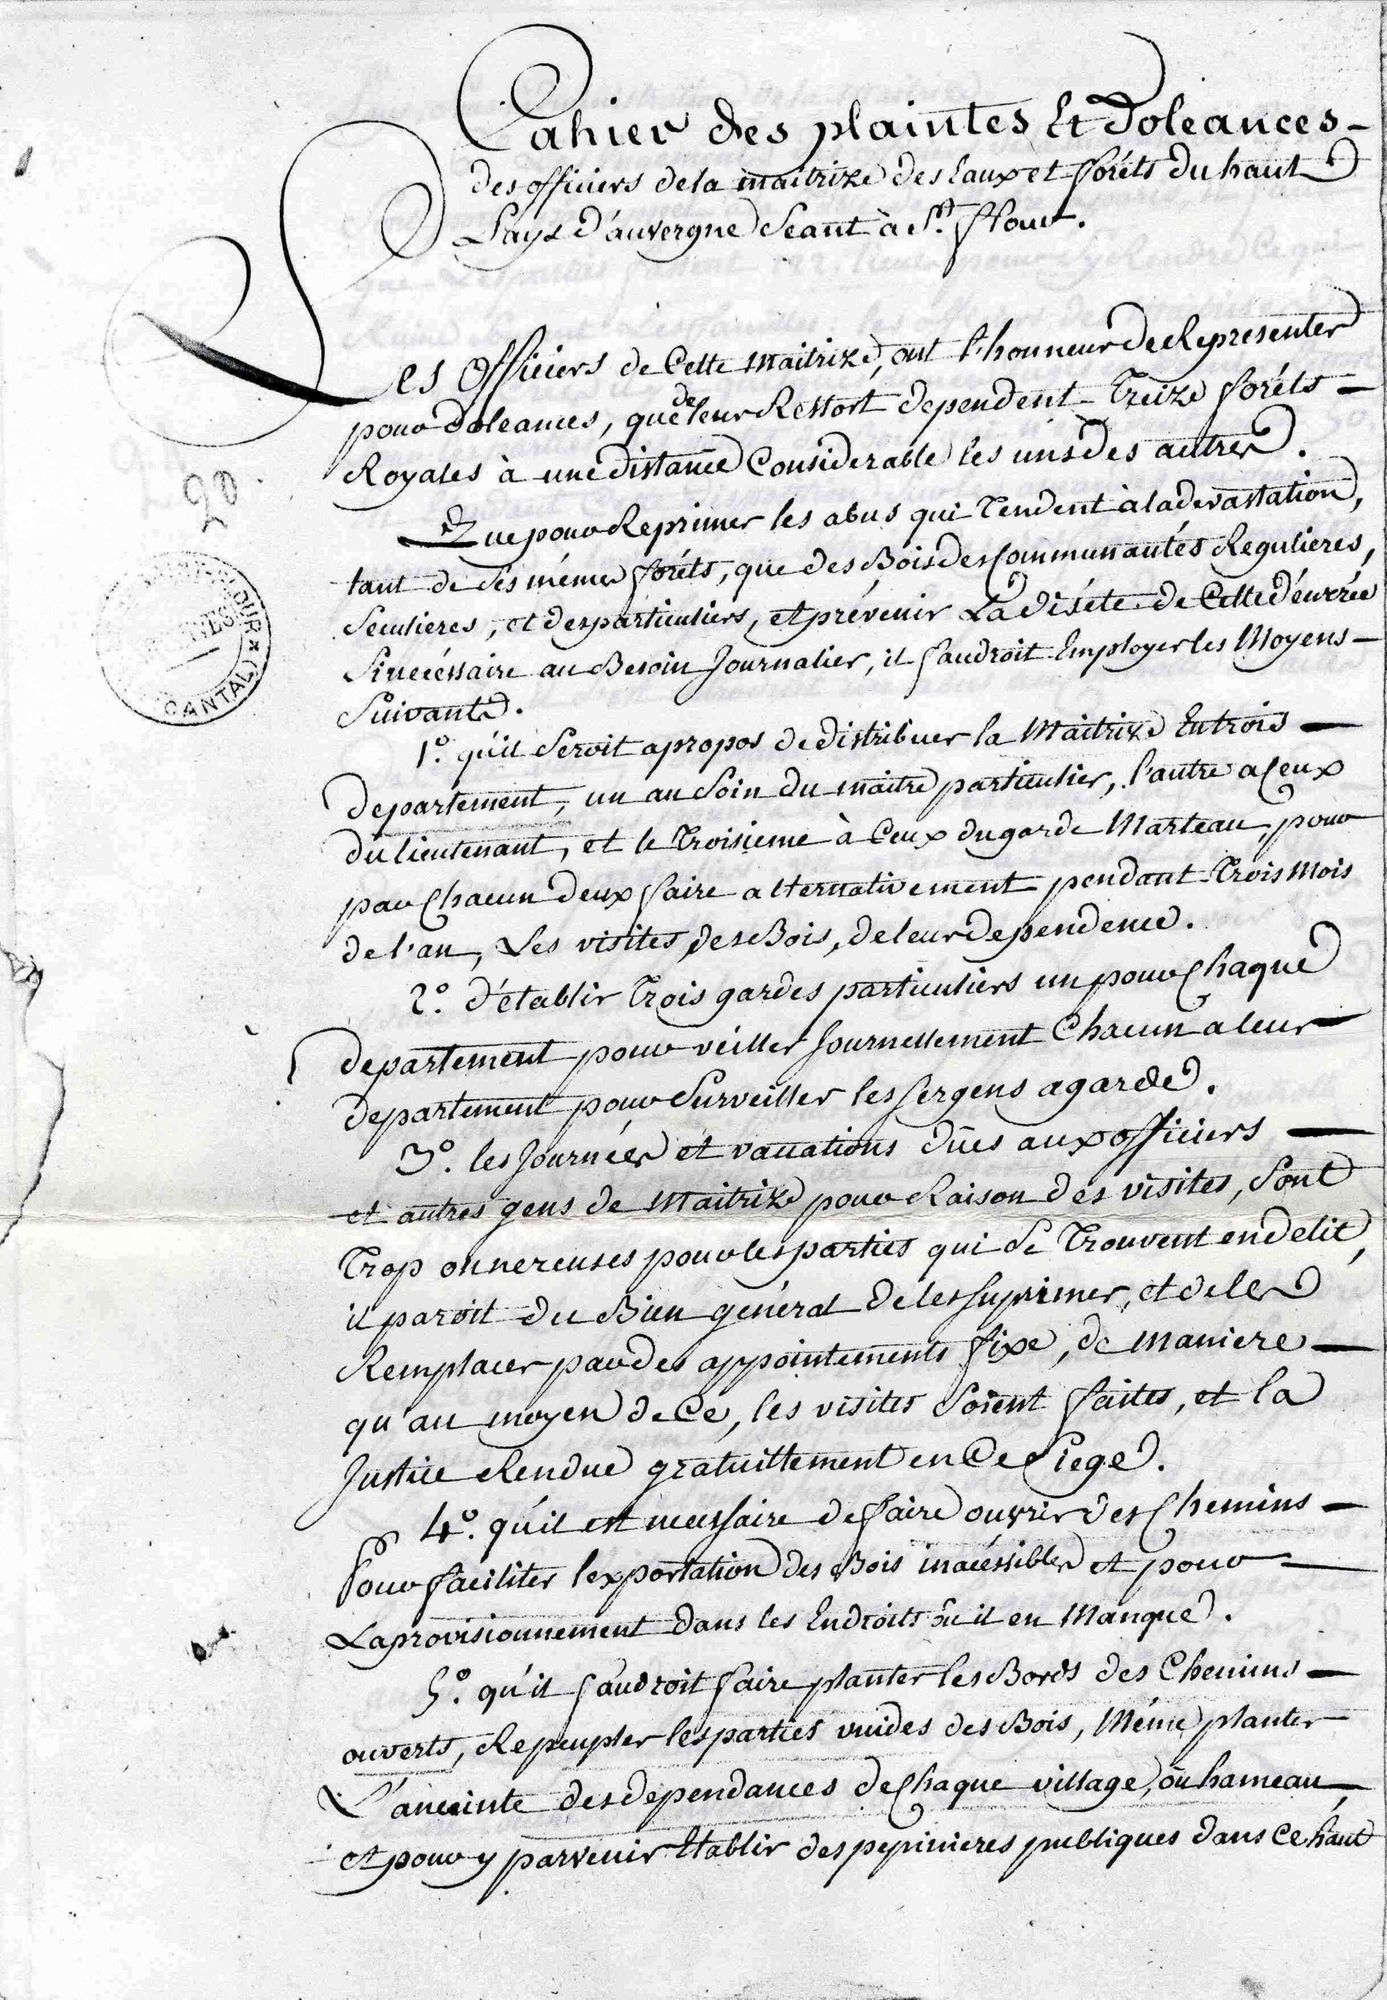 Cahier des plaintes Et doleances
des officiers de la maitrize des Eaux et foréts du haut
Pays d'auvergne Seant à St. flour.
Les Officiers de Cette maitrize, ont l'honneur de Representer
pour doleances, que de leur Ressort dependent Treize foréts
Royales à une distance Considerable les uns des autres.
Que pour Reprimer les abus qui Tendent à la devastation,
tant de ses mémes foréts, que des Bois des Communautés Regulieres,
Seculieres, et des particuliers, et prévenir La diséte de Cette denrée
Si necéssaire au Besoin Journalier, il faudroit Employer les Moyens
Suivants.
1°. qu'il Seroit apropos de distribuer la Maitrize En trois
departement, un au Soin du maitre particulier, l'autre a Ceux
du lieutenant, et le Troisieme à Ceux du garde Marteau, pour
par Chacun deux faire alternativement pendant Trois Mois
de l'an, Les visites des Bois, de leur dependence.
2°. d'établir Trois gardes particuliers un pour Chaque
departement pour véiller Journellement Chacun a leur
departement pour Surveiller les Sergens a garde.
3°. les Journées et vacations dûes aux officiers
et autres gens de Maitrize pour Raison des visites, Sont
Trop onnereuses pour les parties qui Se Trouvent en delit,
il paroit du Bien général de les Suprimer, et de les
Remplacer par des appointements fixe, de maniere
qu'au moyen de Ce, les visites Soient faites, et la
Justice Rendue gratuittement en Ce Siege.
4°. qu'il est necessaire de faire ouvrir des Chemins
Pour faciliter l'exportation des Bois inacéssibles et pour
Laprovisionnement dans les Endroits ou il en Manque.
5°. qu'il faudroit faire planter les Bords des Chemins
ouverts, Repeupler les parties vuides des Bois, Méme planter
L'anceinte des dependances de Chaque village, ou hameau,
et pour y parvenir Etablir des pepinieres publiques dans Ce haut
20
CANTAL